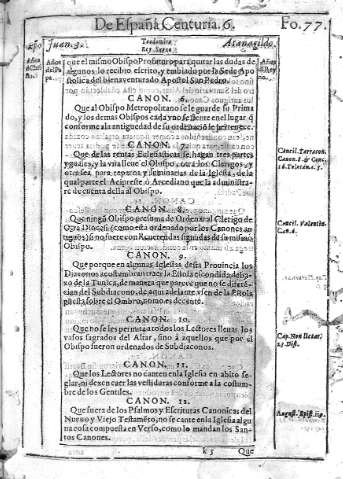 De España Centuria. 6. Fo. 77.
Juan. 3. Teodomiro Rey Suevo Atanagildo.
que el mismo Obispo Profuturo para quitar las dudas de
algunos lo recibio escrito, y embiado por la Sede Apo
stolica del bienaventurado Apostol San Pedro.
CANON. 6.
Que al Obispo Metropolitano se le guarde su Prima
do, y los demas Obispos cada vno se siente en el lugar, q̃
conforme a la antiguedad de su ordenaciõ le pertenece.
CANON. 7.
Que de las rentas Eclesiasticas se hagan tres partes
yguales, y la vna lleve el Obispo, otra los Clerigos, y
otra sea para reparos y luminarias de la Iglesia, de la
qual parte el Acipreste ò Arcediano que la administra
re de cuenta della al Obispo.
CANON. 8.
Que ningũ Obispo presuma de Ordenar al Clerigo de
Otra Diocesi (como esta ordenado por los Canones an
tiguos) si no fuere con Reuerendas signadas de su mismo
Obispo.
CANON. 9.
Que porque en algunas Iglesias desta Prouincia los
Diaconos acostumbran traer la Estola escondida debaxo
de la Tunica, de manera que parece que no se diferẽ
cian del Subdiacono, de aqui adelante vsen de la Estola
puesta sobre el Ombro, como es decente.
CANON. 10.
Que no se les permita a todos los Lectores lleuar los
vasos sagrados del Altar, sino à aquellos que por el
Obispo fueron ordenados de Subdiaconos.
CANON. 11.
Que los Lectores no canten en la Iglesia en abito se
glar, ni dexen cuer las vestiduras conforme a la costum
bre de los Gentiles.
CANON. 12.
Que fuera de los Psalmos y Escrituras Canonicas del
Nueuo y Viejo Testamẽto, no se cante en la Iglesia algu
na cosa compuesta en Verso, como lo mandan los San
tos Canones.
k 5 Que
Concil. Tarracon.
Canon. 8
Concil. Valentin.
Can. 6.
Cap. Non licear.
23 Dist.
August. Epist. 119.